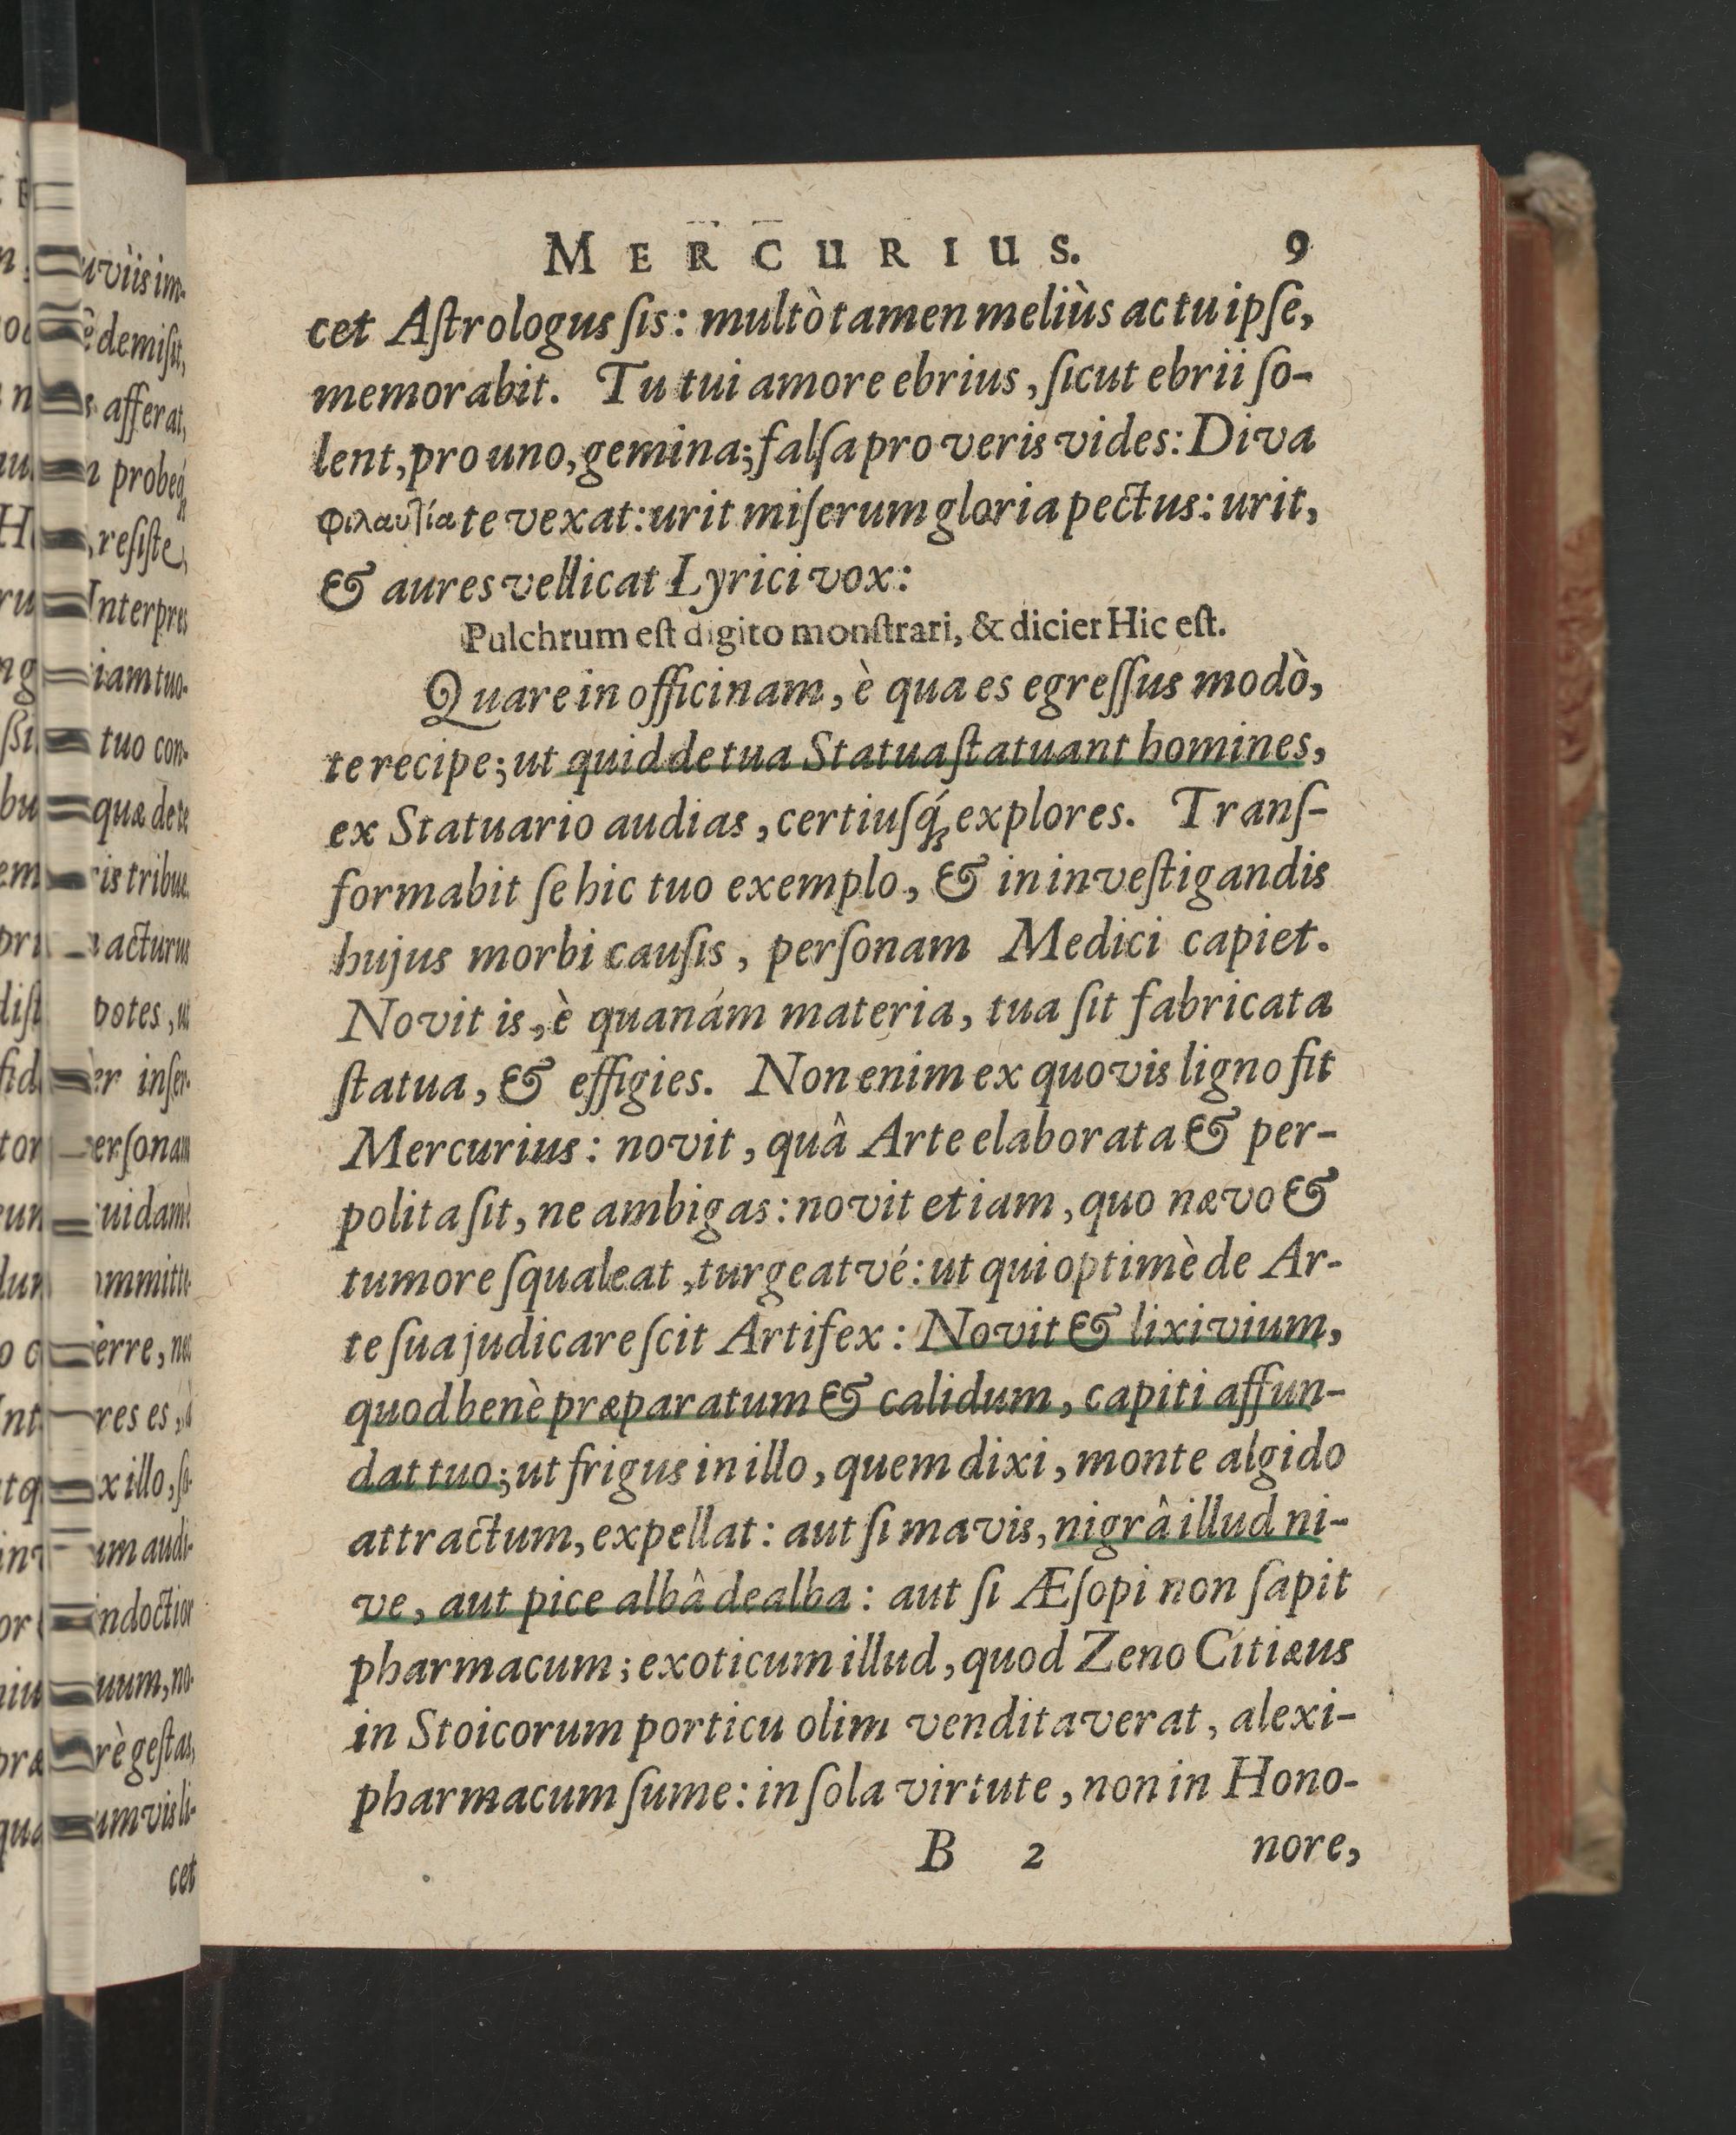 MERCURIUS. 9
cet Aſtrologus ſis: multò tamen meliùs actu ipſe,
memorabit. Tu tui amore ebrius, ſicut ebrii ſo-
lent, pro uno, gemina; falſa pro veris vides: Diva
φιλαυτία te vexat: urit miſerum gloria pectus: urit,
& aures vellicat Lyrici vox:
Pulchrum eſt digito monſtrari, & dicier Hic eſt.
Quare in officinam, è qua es egreſſus modò,
te recipe; ut quid de tua Statua ſtatuant homines,
ex Statuario audias, certiuſq́; explores. Tranſ-
formabit ſe hic tuo exemplo, & in inveſtigandis
hujus morbi cauſis, perſonam Medici capiet.
Novit is, è quanám materia, tua ſit fabricata
ſtatua, & effigies. Non enim ex quovis ligno fit
Mercurius: novit, quâ Arte elaborata & per-
polita ſit, ne ambigas: novit etiam, quo nævo &
tumore ſqualeat, turgeatvé: ut qui optimè de Ar-
te ſua judicare ſcit Artifex: Novit & lixivium,
quod benè præparatum & calidum, capiti affun-
dat tuo; ut frigus in illo, quem dixi, monte algido
attractum, expellat: aut ſi mavis, nigrâ illud ni-
ve, aut pice albâ dealba: aut ſi Æſopi non ſapit
pharmacum; exoticum illud, quod Zeno Citiæus
in Stoicorum porticu olim venditaverat, alexi-
pharmacum ſume: in ſola virtute, non in Hono-
B 2 nore,
uviis im-
demiſit,
afferat,
probeq́;
reſiſte,
Interpres
iam tuo-
tuo con-
quæ de te
is tribue.
acturus
potes, ut
er inſer-
erſonam
uidam
ommitte
erre, nec
res es,
x illo, ſo-
um audi-
indoctior
uum, no-
rè geſtas,
um vis li-
cet